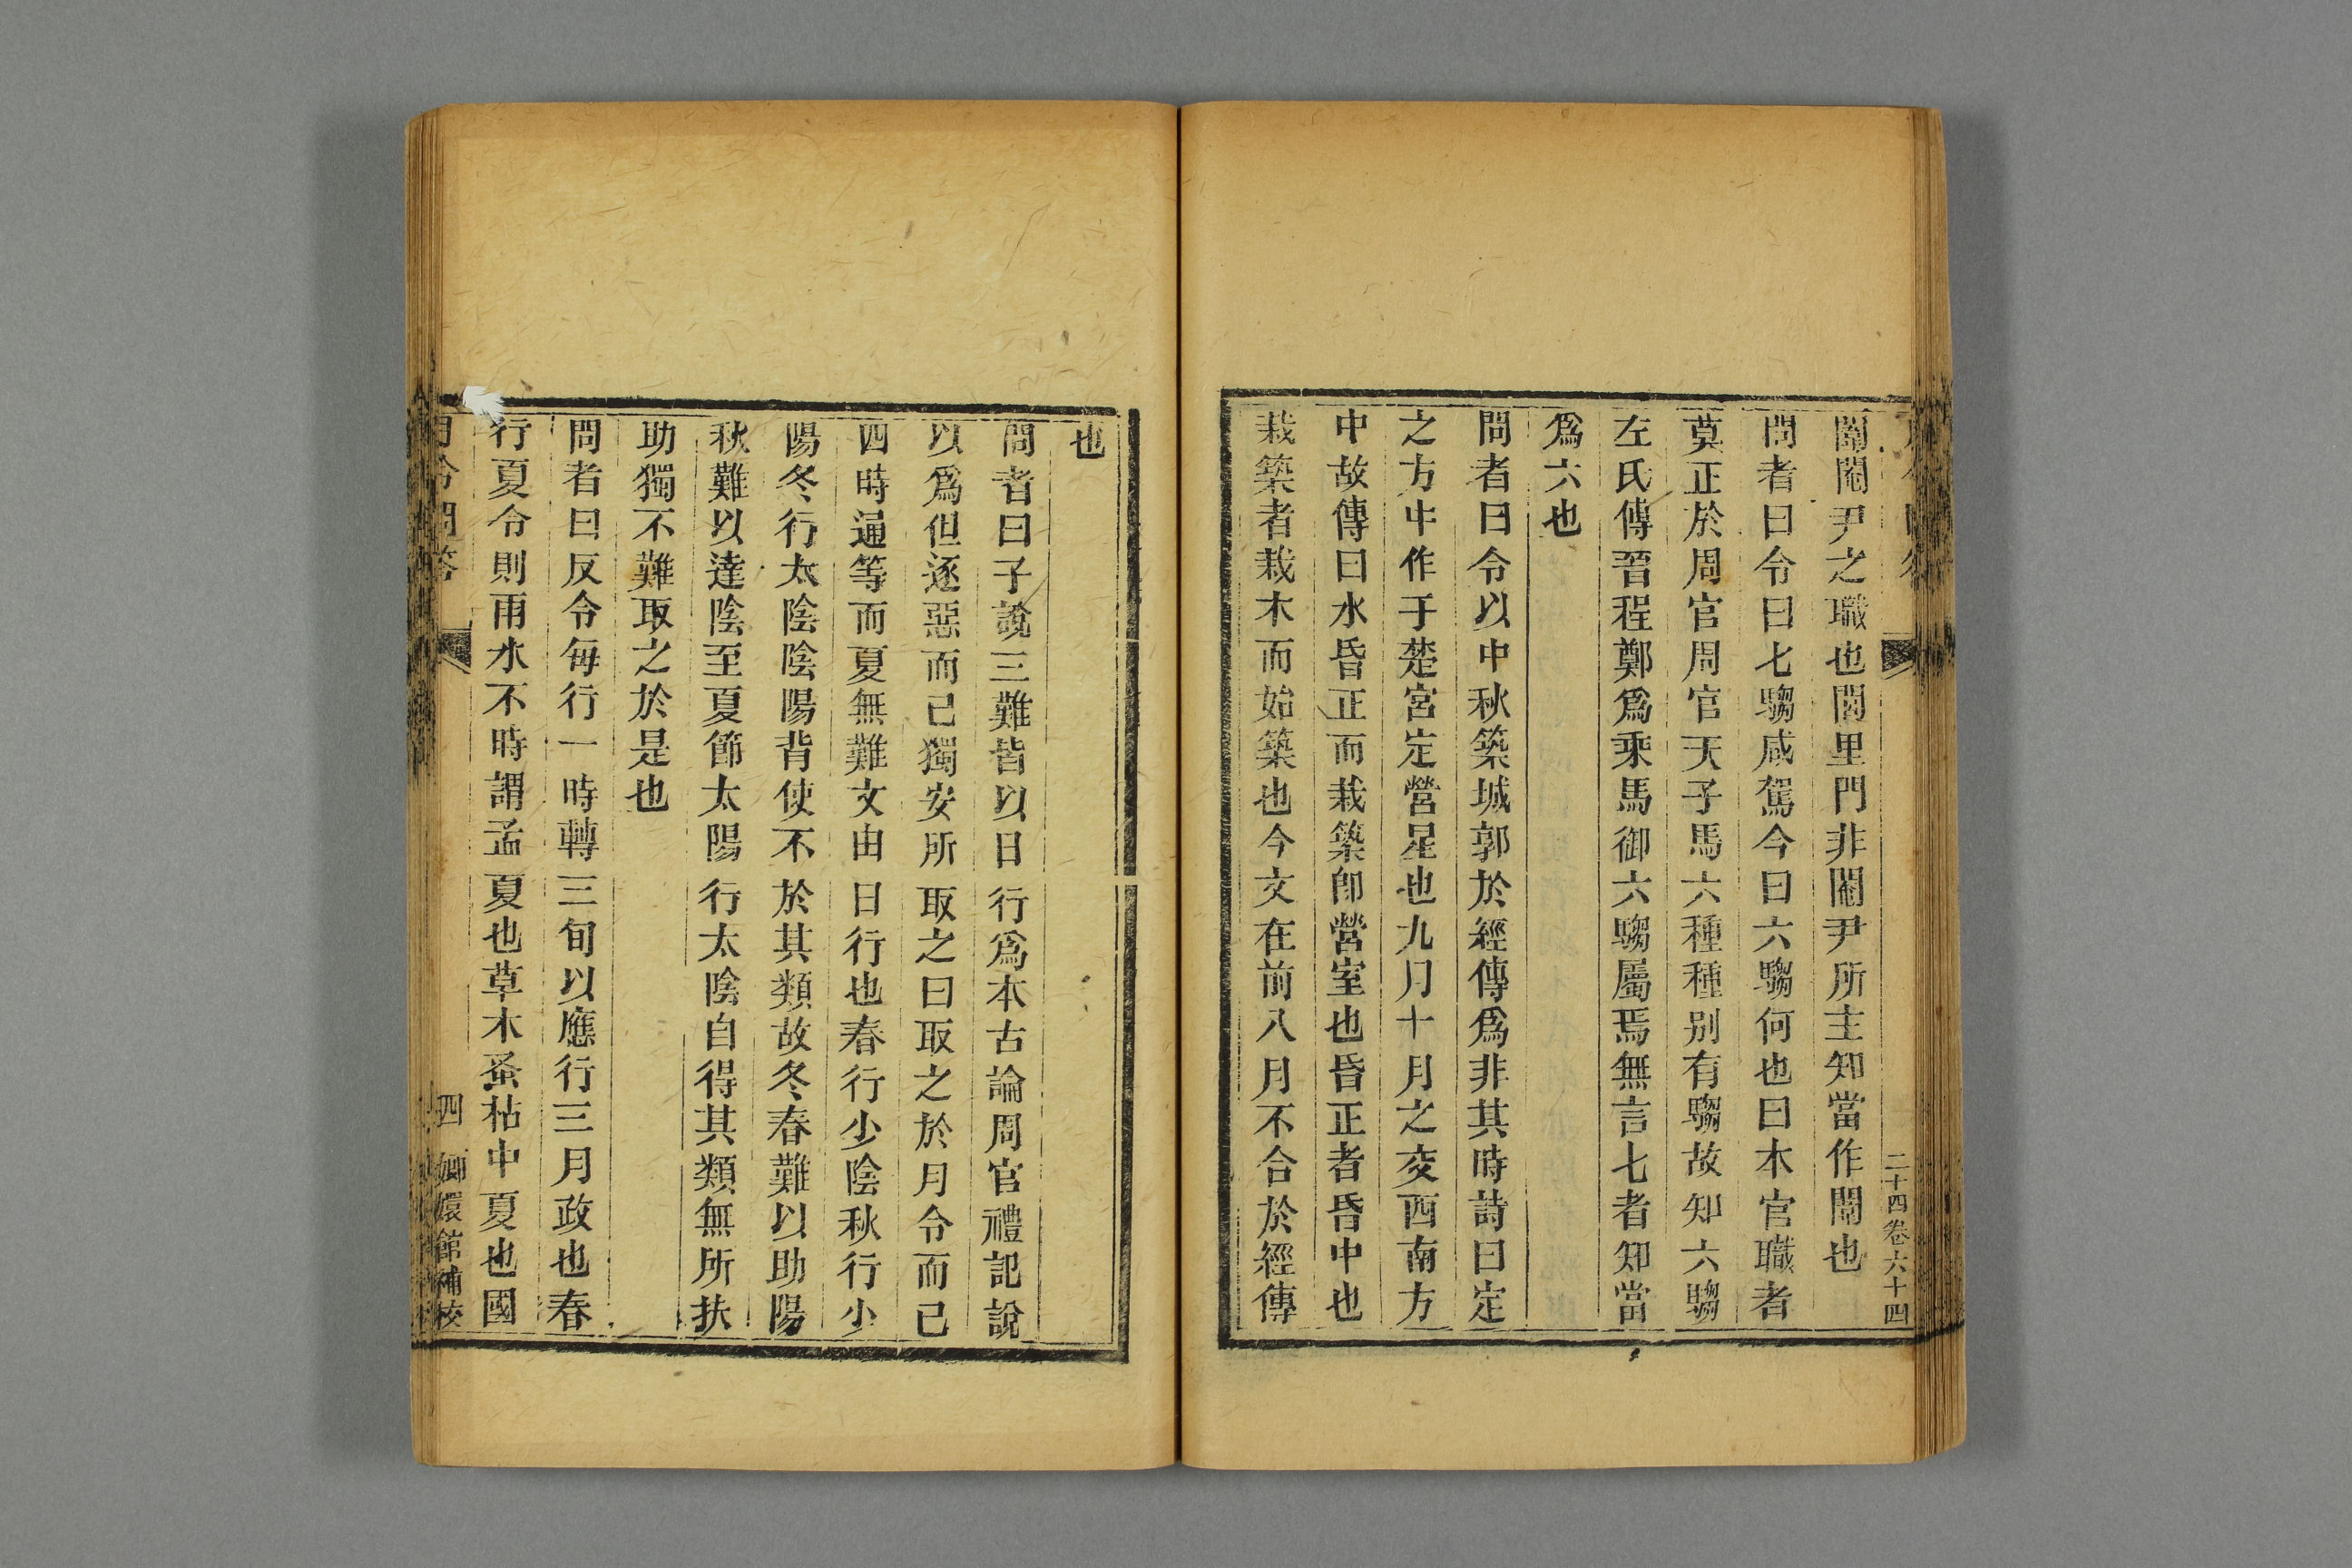 二十四卷六十四
闈閽尹之職也閭里門非閽尹所主知當作闈也
問者曰令曰七騶咸駕今曰六騶何也曰木官職者
莫正於周官周官天子馬六種種別有騶故知六騶
左氏傳晉程鄭爲乘馬御六騶屬焉無言七者知當
爲六也
問者曰令以中秋築城郭於經傳爲非其時詩曰定
之方中作于楚宮定營星也九月十月之交西南方
中故傳曰水昏正而栽築卽營室也昏正者昏中也
栽築者栽木而始築也今文在前八月不合於經傳
也
問者曰子說三難皆以日行爲本古論周官禮記說
以爲但逐惡而已獨安所取之曰取之於月令而已
四時通等而夏無難文由日行也春行少陰秋行少
陽冬行太陰陰陽背使不於其類故冬春難以助陽
秋難以達陰至夏節太陽行太陰自得其類無所扶
助獨不難取之於是也
問者曰反令每行一時轉三旬以應行三月政也春
行夏令則雨水不時謂孟夏也草木蚤枯中夏也國
月令問答 四 嫏嬛館補校